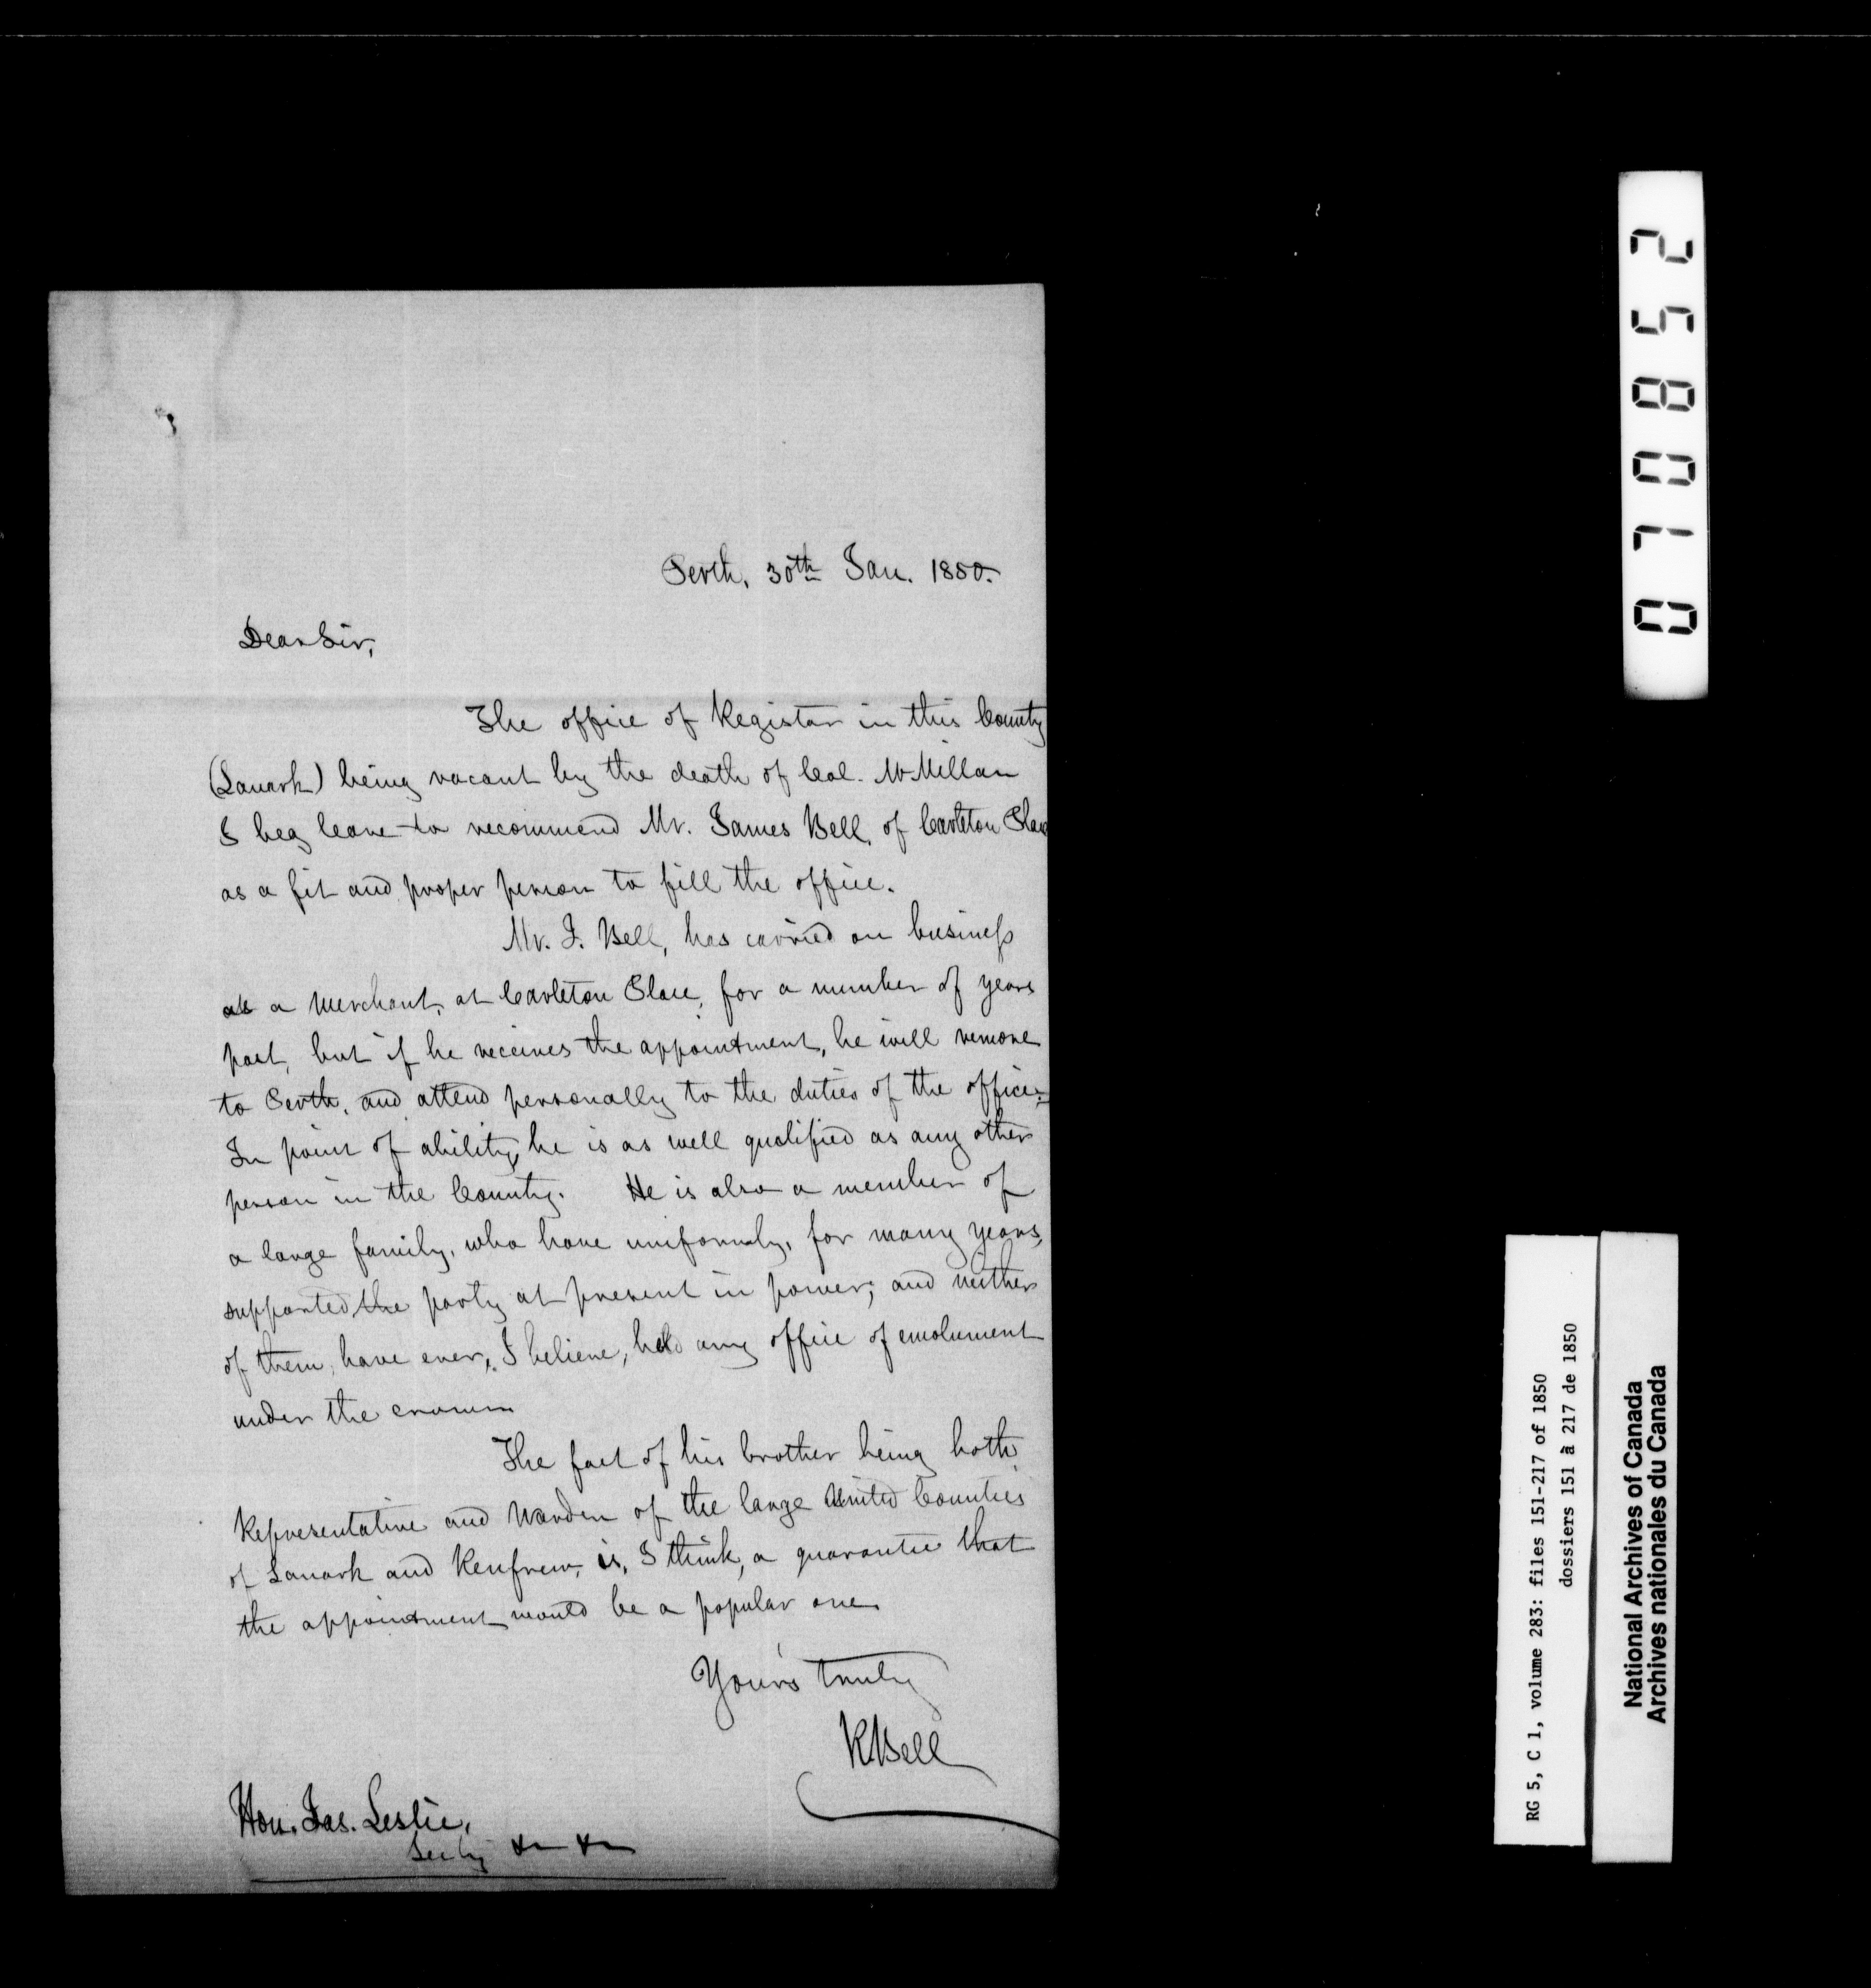 Perth, 30th Jan. 1850.
Dear Sir,
The office of Registar in this County
(Lanark) being vacant by the death of Col. McMillan
I beg leave to recommend Mr. James Bell, of Carleton Place
as a fit and proper person to fill the office.
Mr. J. Bell, has carried on business
as a Merchant, at Carleton Place, for a number of years
past, but if he receives the appointment, he will remove
to Perth, and attend personally to the duties of the office.
In point of ability, he is as well qualified as any other
person in the County. He is also a member of
a large family, who have uniformly, for many years,
supported the party at present in power; and neither
of them, have ever, I believe, held any office of emolument
under the crown
The fact of his brother being both
Representative and Warden of the large United Counties
of Lanark and Renfrew, is, I think, a guarantee that
the appointment would be a popular one.
Yours truly
R Bell
Hon. Jas. Leslie,
Secty &c &c
0710852
RG 5, C 1, volume 283: files 151-217 of 1850
dossiers 151 à 217 de 1850
National Archives of Canada
Archives nationales du Canada